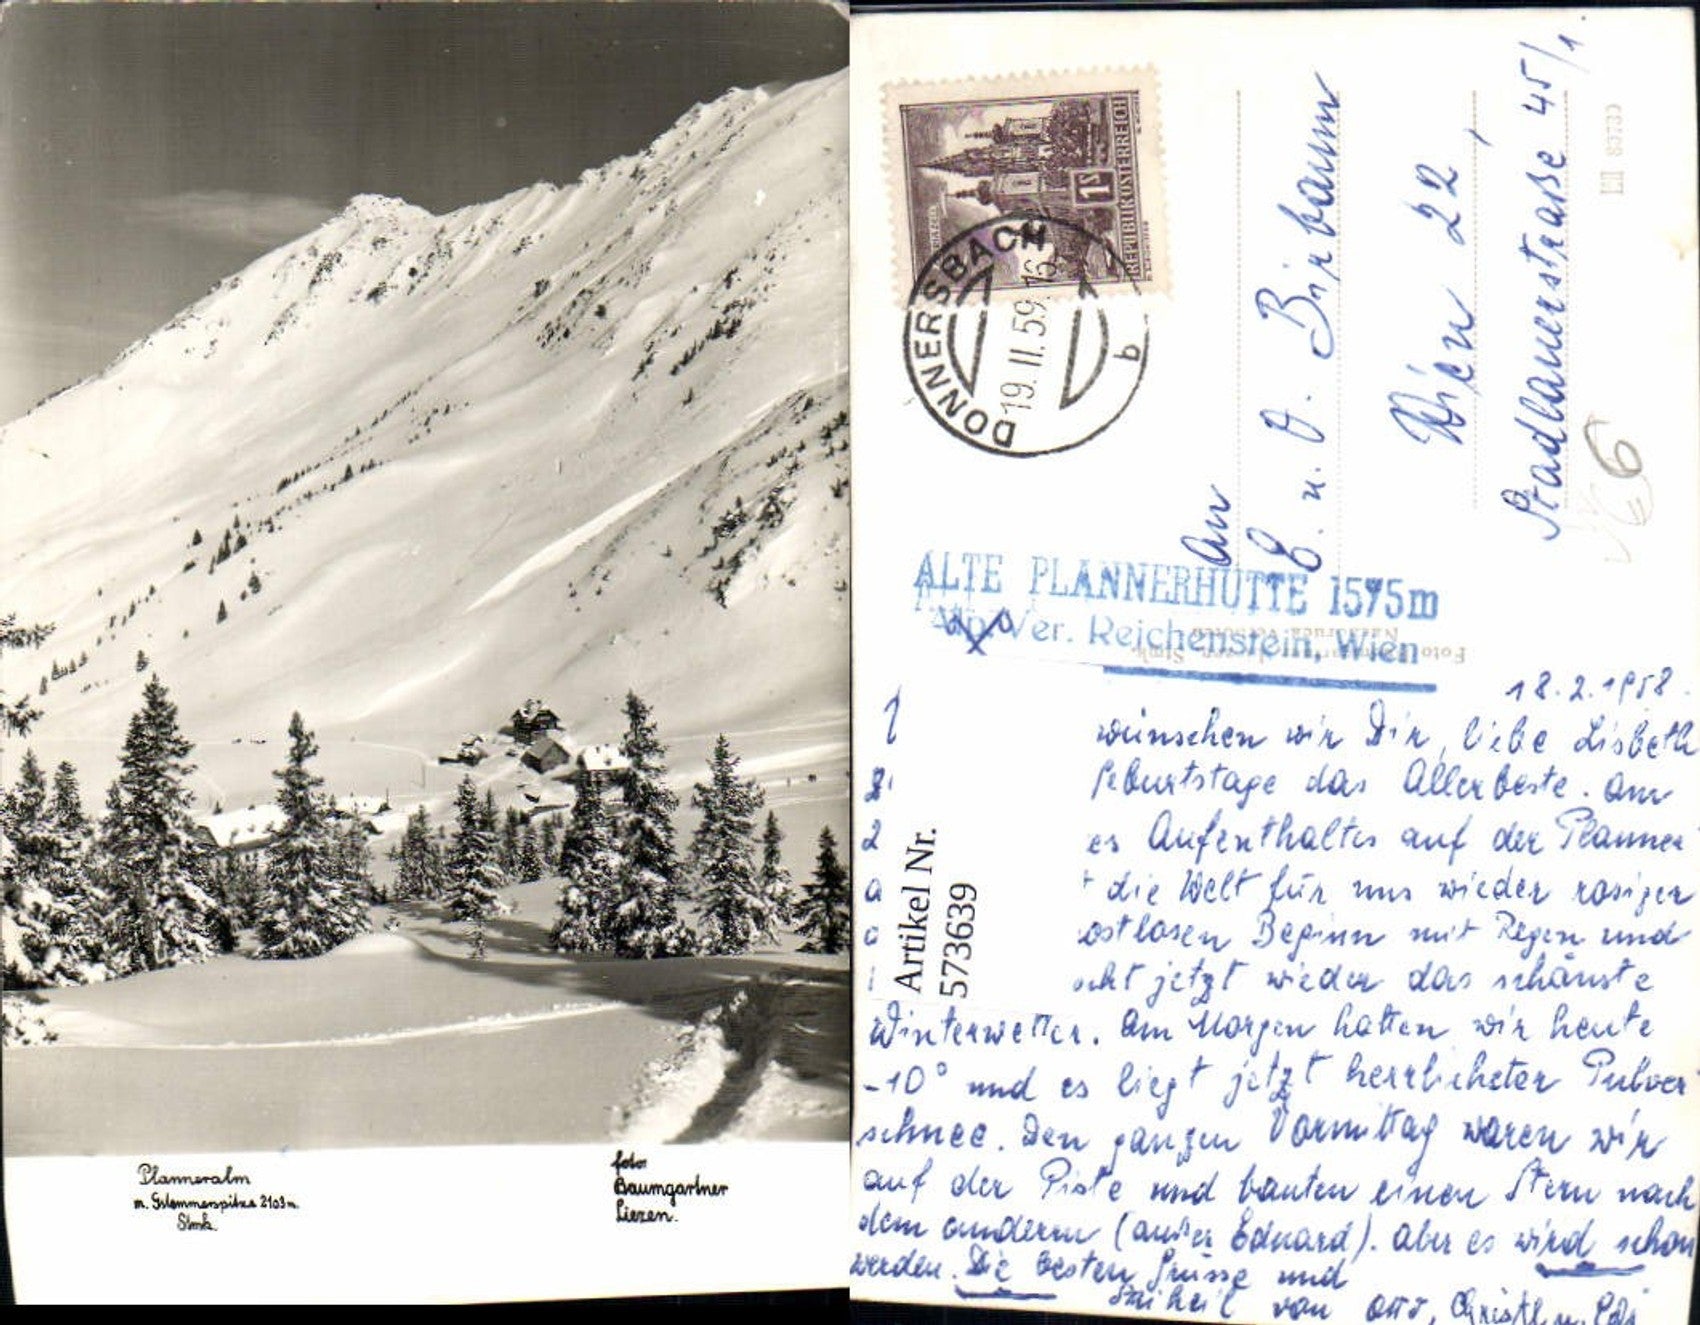 Planneralm
m. Glommerspitze 2103 m.
Stmk.
foto
Baumgartner
Liezen.
1S
REPUBLIK ÖSTERREICH
MARIAZELL
DONNERSBACH
19.II.59.16
b
An
E. u. O. Birbaum
Wien 22,
Stadlauerstraße 45/1
6
ALTE PLANNERHÜTTE 1575m
Alp. Ver. Reichenstein, Wien
18.2.1958.
wünschen wir Dir, liebe Lisbeth
Geburtstage das Allerbeste. Am
es Aufenthaltes auf der Planner
t die Welt für uns wieder rosiger
ostlosen Beginn mit Regen und
cht jetzt wieder das schönste
Winterwetter. Am Morgen hatten wir heute
-10° und es liegt jetzt herrlichster Pulver
schnee. Den ganzen Vormittag waren wir
auf der Piste und bauten einen Stern nach
dem anderen (außer Eduard). Aber es wird schon
werden. Die besten Grüsse und
Schi heil von Otto, Christl u. Edi
Artikel Nr.
573639